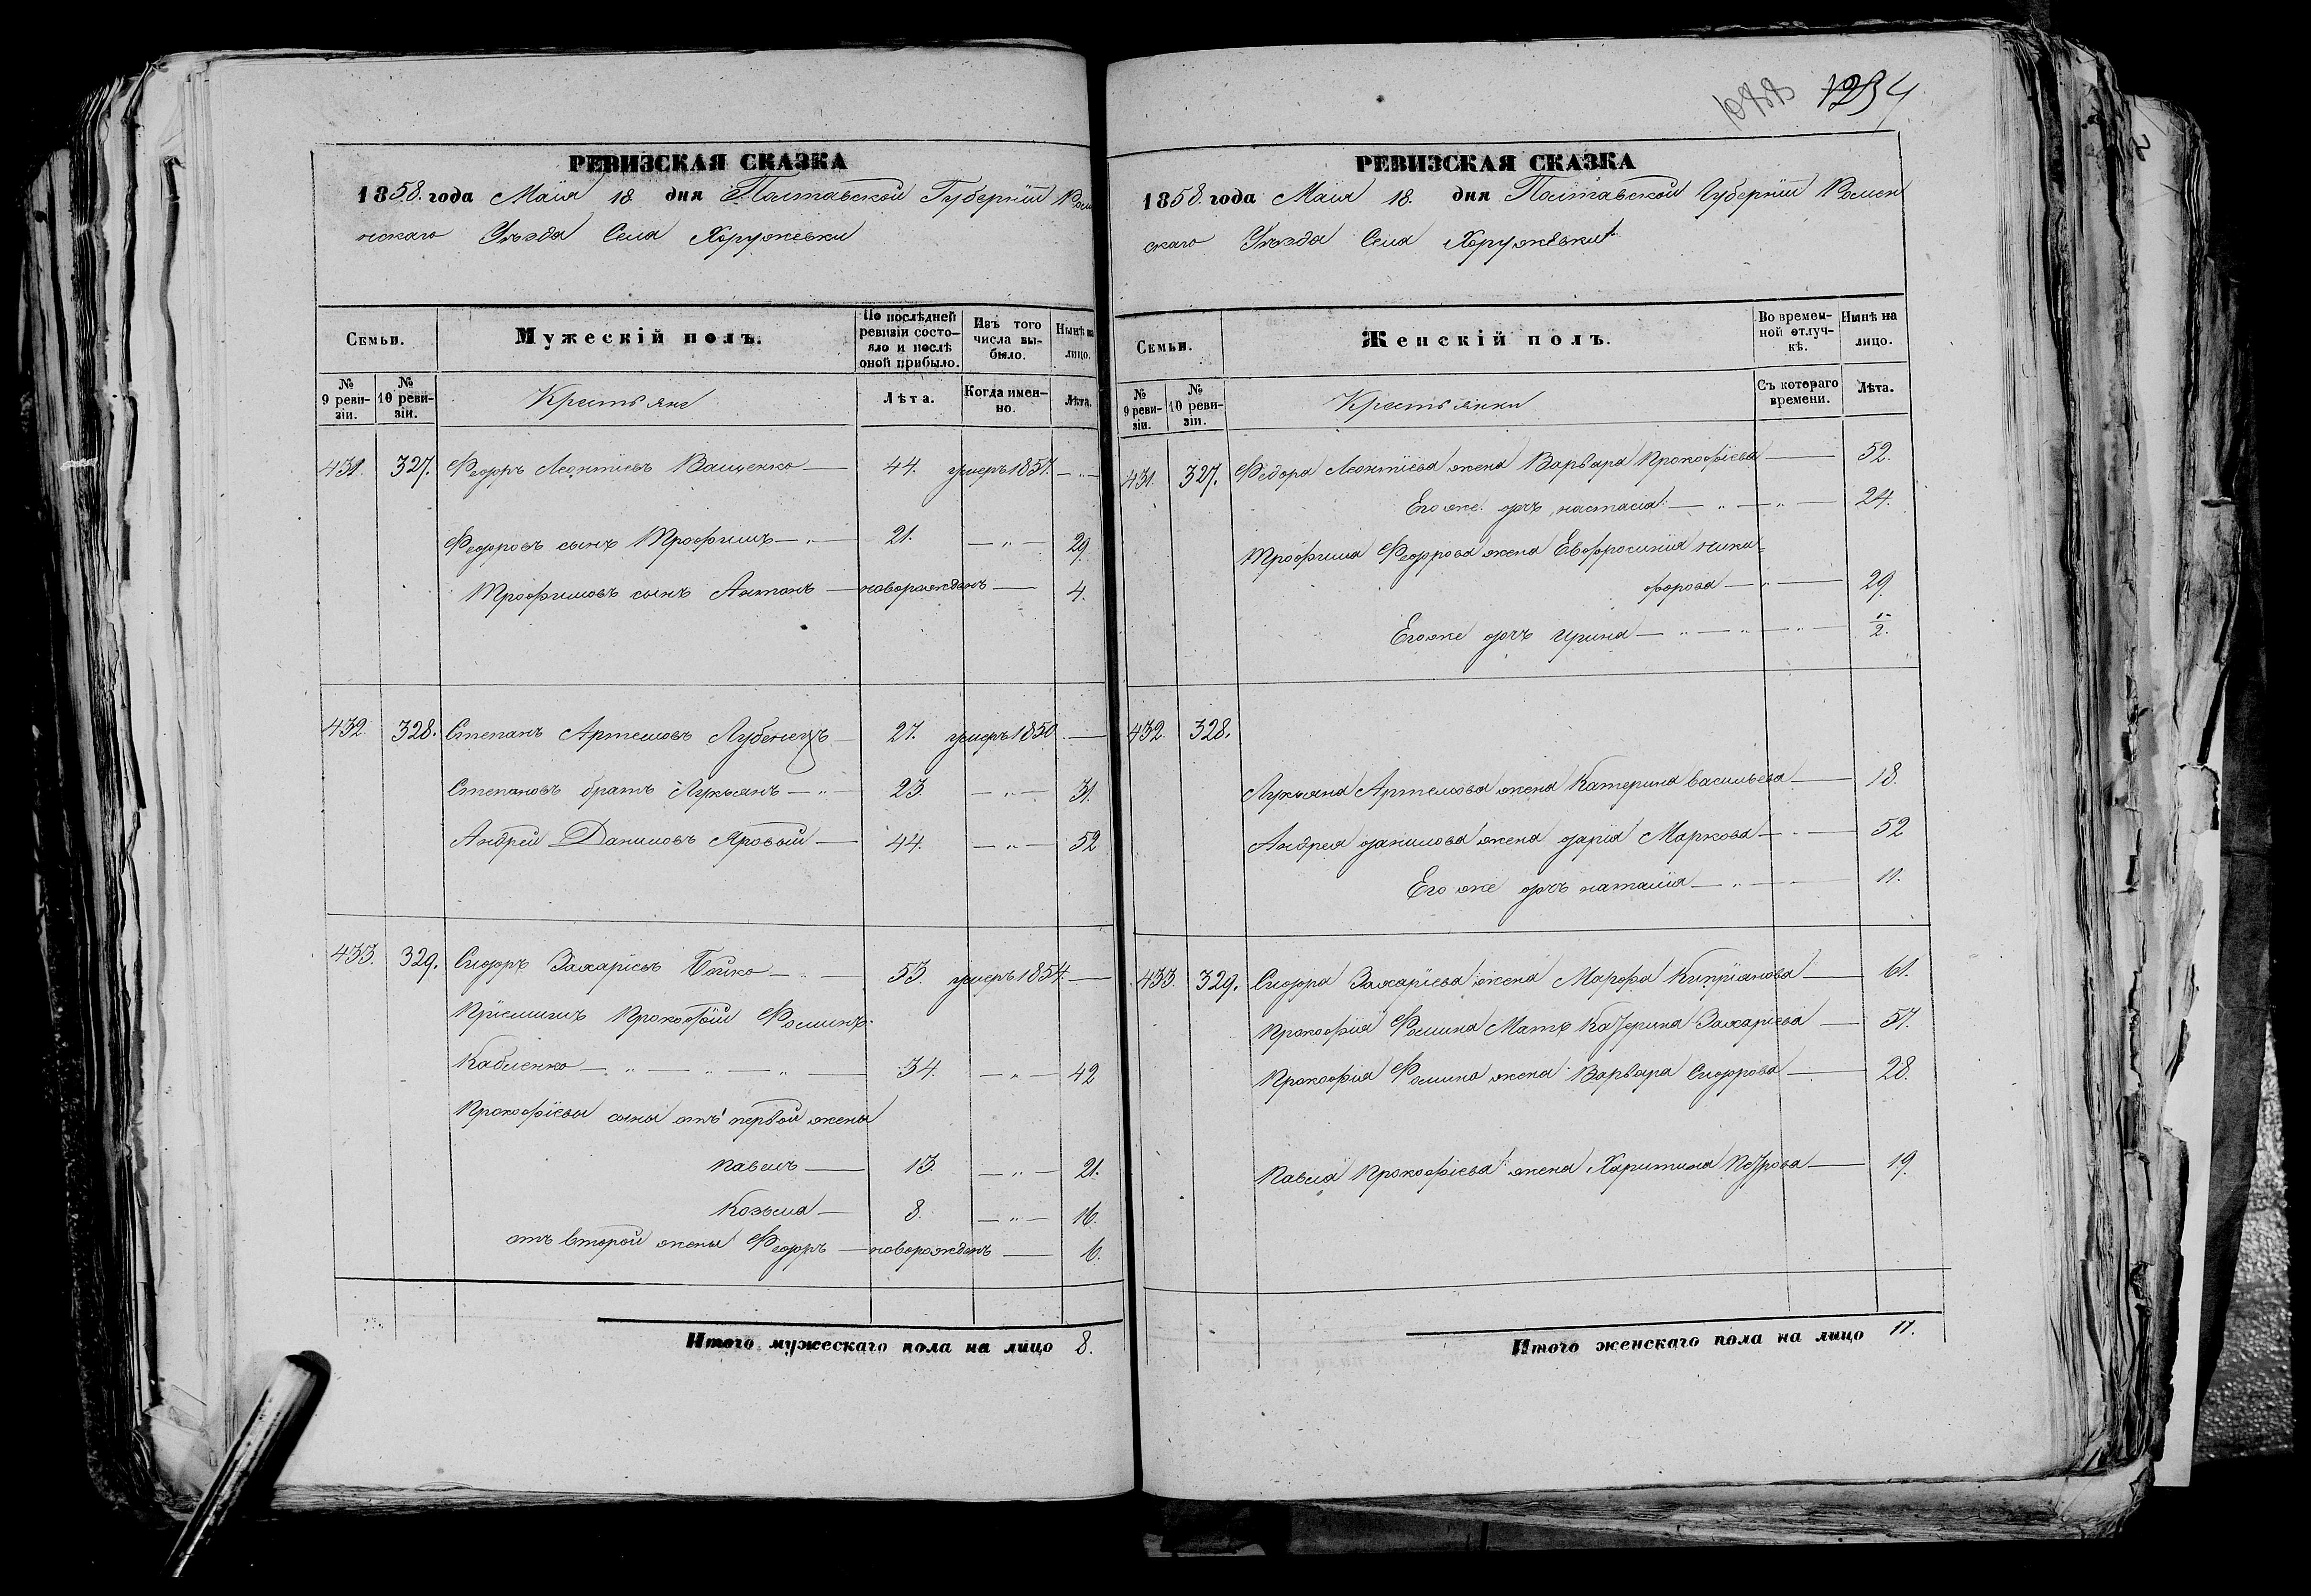 РЕВИЗСКАЯ СКАЗКА
1858. года Маія 18. дня Полтавской Губерніи Роме
нскаго Уѣзда Села Хоружевки
Семьи.
Мужескій полъ.
По послѣдней ревизіи состояло и послѣ оной прибыло.
Изъ того числа выбыло.
Нынѣ на лицо.
№ 9 ревизіи.
№ 10 ревизіи.
Крестьяне
Лѣта.
Когда именно.
Лѣта.
431. 327. Федоръ Леонтіевъ Ващенко — 44. умеръ 1857. — „ —
Федоровъ сынъ Трофимъ — „ — 21. — „ — 29.
Трофимовъ сынъ Антонъ — новорожденъ — 4.
432. 328. Степанъ Артемовъ Лубенецъ — 27. умеръ 1850 —
Степановъ братъ Лукьянъ — „ — 23. — „ — 31.
Андрей Даниловъ Яровый — 44. — „ — 52
433. 329. Сидоръ Захаріевъ Бойко — „ — 53. умеръ 1854. —
Пріемышъ Прокофій Фоминъ
Кабленко — „ — „ — „ — 34. — „ — 42
Прокофіевы сыны отъ первой жены
Павелъ — 13. — „ — 21.
Козьма — 8. — „ — 16.
отъ второй жены Федоръ — новорожденъ — 6.
Итого мужескаго пола на лицо 8.
1234
РЕВИЗСКАЯ СКАЗКА
1858. года Маія 18. дня Полтавской Губерніи Ромен
скаго Уѣзда Села Хоружевки
Семьи.
Женскій полъ.
Во временной отлучкѣ.
Нынѣ на лицо.
№ 9 ревизіи.
№ 10 ревизіи.
Крестьянки
Съ котораго времени.
Лѣта.
431. 327. Федора Леонтіева жена Варвара Прокофіева — 52.
Его же дочь настасія — „ — „ — 24.
Трофима Федорова жена Евфросинія ники=
форова — „ — 29.
Его же дочь ирина — „ — „ — „ — 2.
432. 328.
Лукьяна Артемова жена Катерина Васильева — 18.
Андрея данилова жена дарія Маркова — „ — 52
Его же дочь наталія — „ — 11.
433. 329. Сидора Захаріева жена Марфа Кипріанова — 61.
Прокофія Фомина Мать Катерина Захаріева — 57.
Прокофія Фомина жена Варвара Сидорова — 28.
Павла Прокофіева жена Харитина Петрова — 19.
Итого женскаго пола на лицо 11.